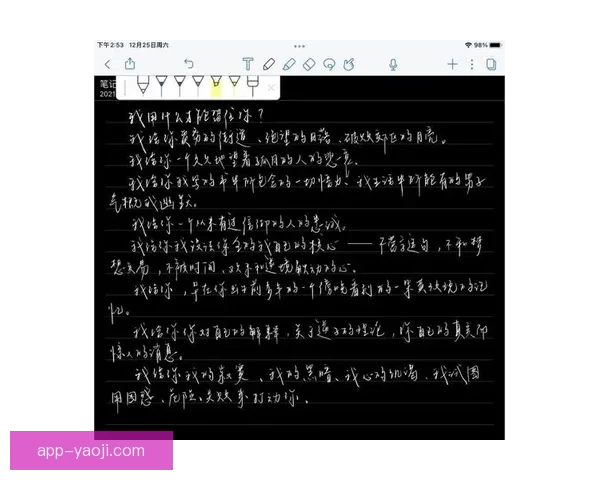 下午2:53 12月25日周六
98%
笔记
2021
我用什么才能留住你？
我给你贫穷的街道、绝望的日落、破败郊区的月亮。
我给你一个久久地望着孤月的人的悲哀。
我给你我写的书中所包含的一切悟力、我生活中所能有的男子
气概或幽默。
我给你一个从未有过信仰的人的忠诚。
我给你我设法保全的我自己的核心 —— 不营字造句，不和梦
想交易，不被时间、欢乐和逆境触动的心。
我给你，早在你出生前多年的一个傍晚看到的一朵黄玫瑰的记
忆。
我给你你对自己的解释，关于你的理论，你自己的真实而
惊人的消息。
我给你我的寂寞、我的黑暗、我心的饥渴，我试图
用困惑、危险、失败来打动你。
app-yaoji.com